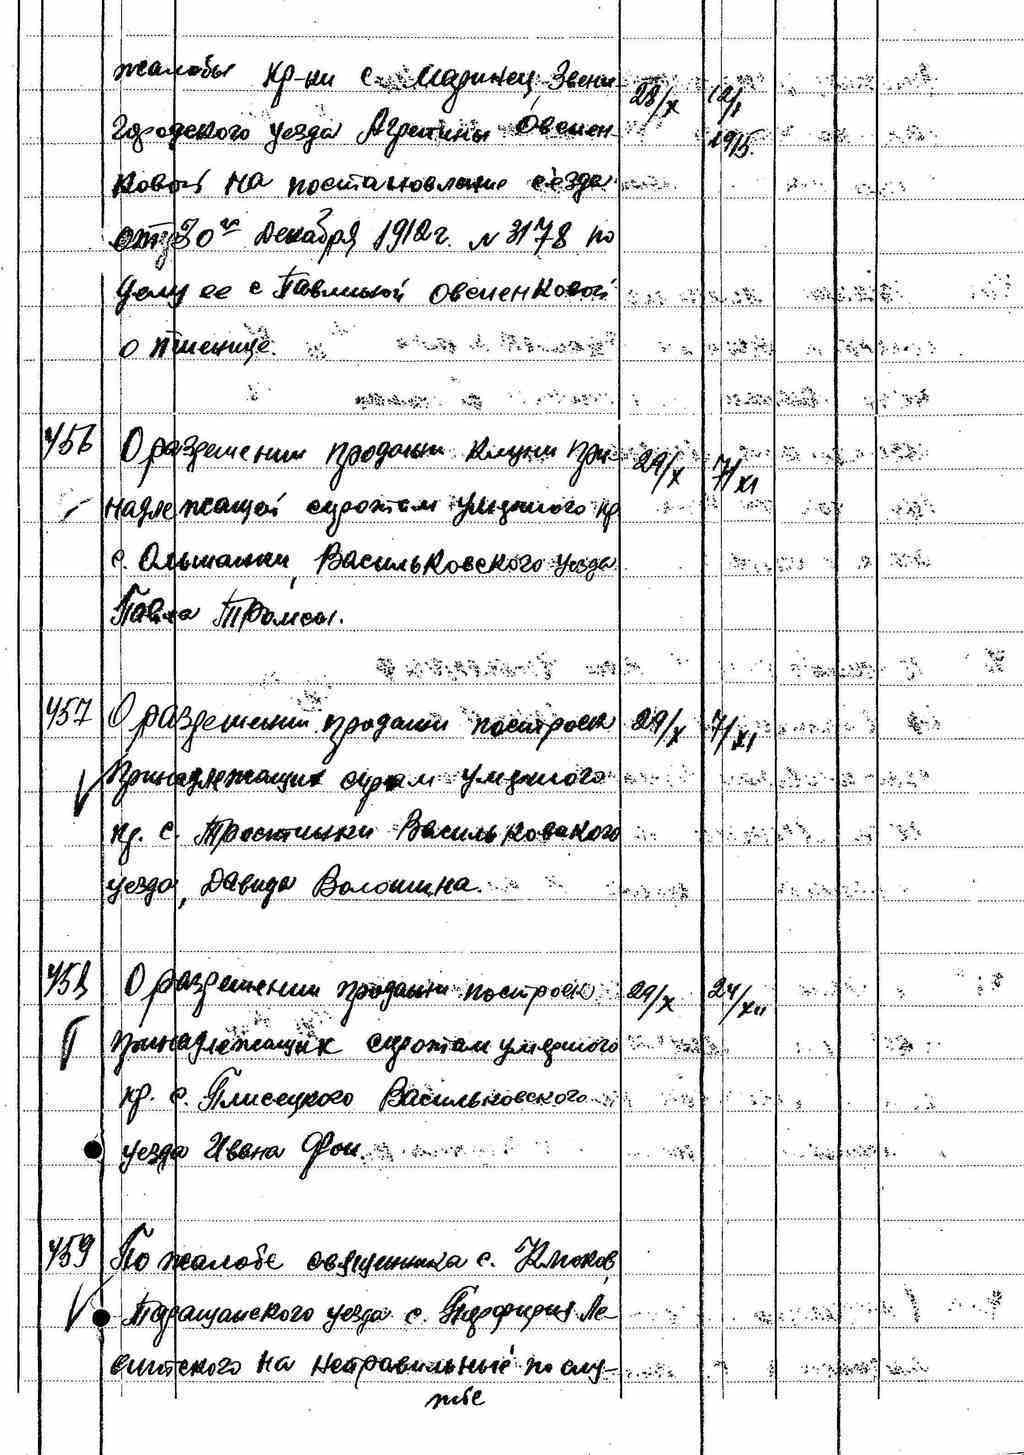 жалобы кр-ки с. Звени- 28/X 12/I
городского уезда Агрепины Овсиен 1915.
ковой на постановление съезда
от 30го Декабря 1912 г. № 3178 по
делу ее с Павлиной Овсиенковой
о пшенице.
456 О разрешении продажи клуни при- 29/X 7/XI
надлежащей сиротам умершого кр
с. Ольшанки, Васильковского уезда
Павла
457 О разрешении продажи построек 29/X 7/XI
принадлежащих умершого
кр. с. Тростинки Васильковского
уезда, Давида Волошина.
458 О разрешении продажи построек 29/X 24/XII
принадлежащих сиротам умершого
кр. с. Плисецкого Васильковского
уезда Ивана
459 По жалобе священника с. Клюков,
Таращанского уезда с. Порфирия Ле-
витского на неправильные по слу-
жбе